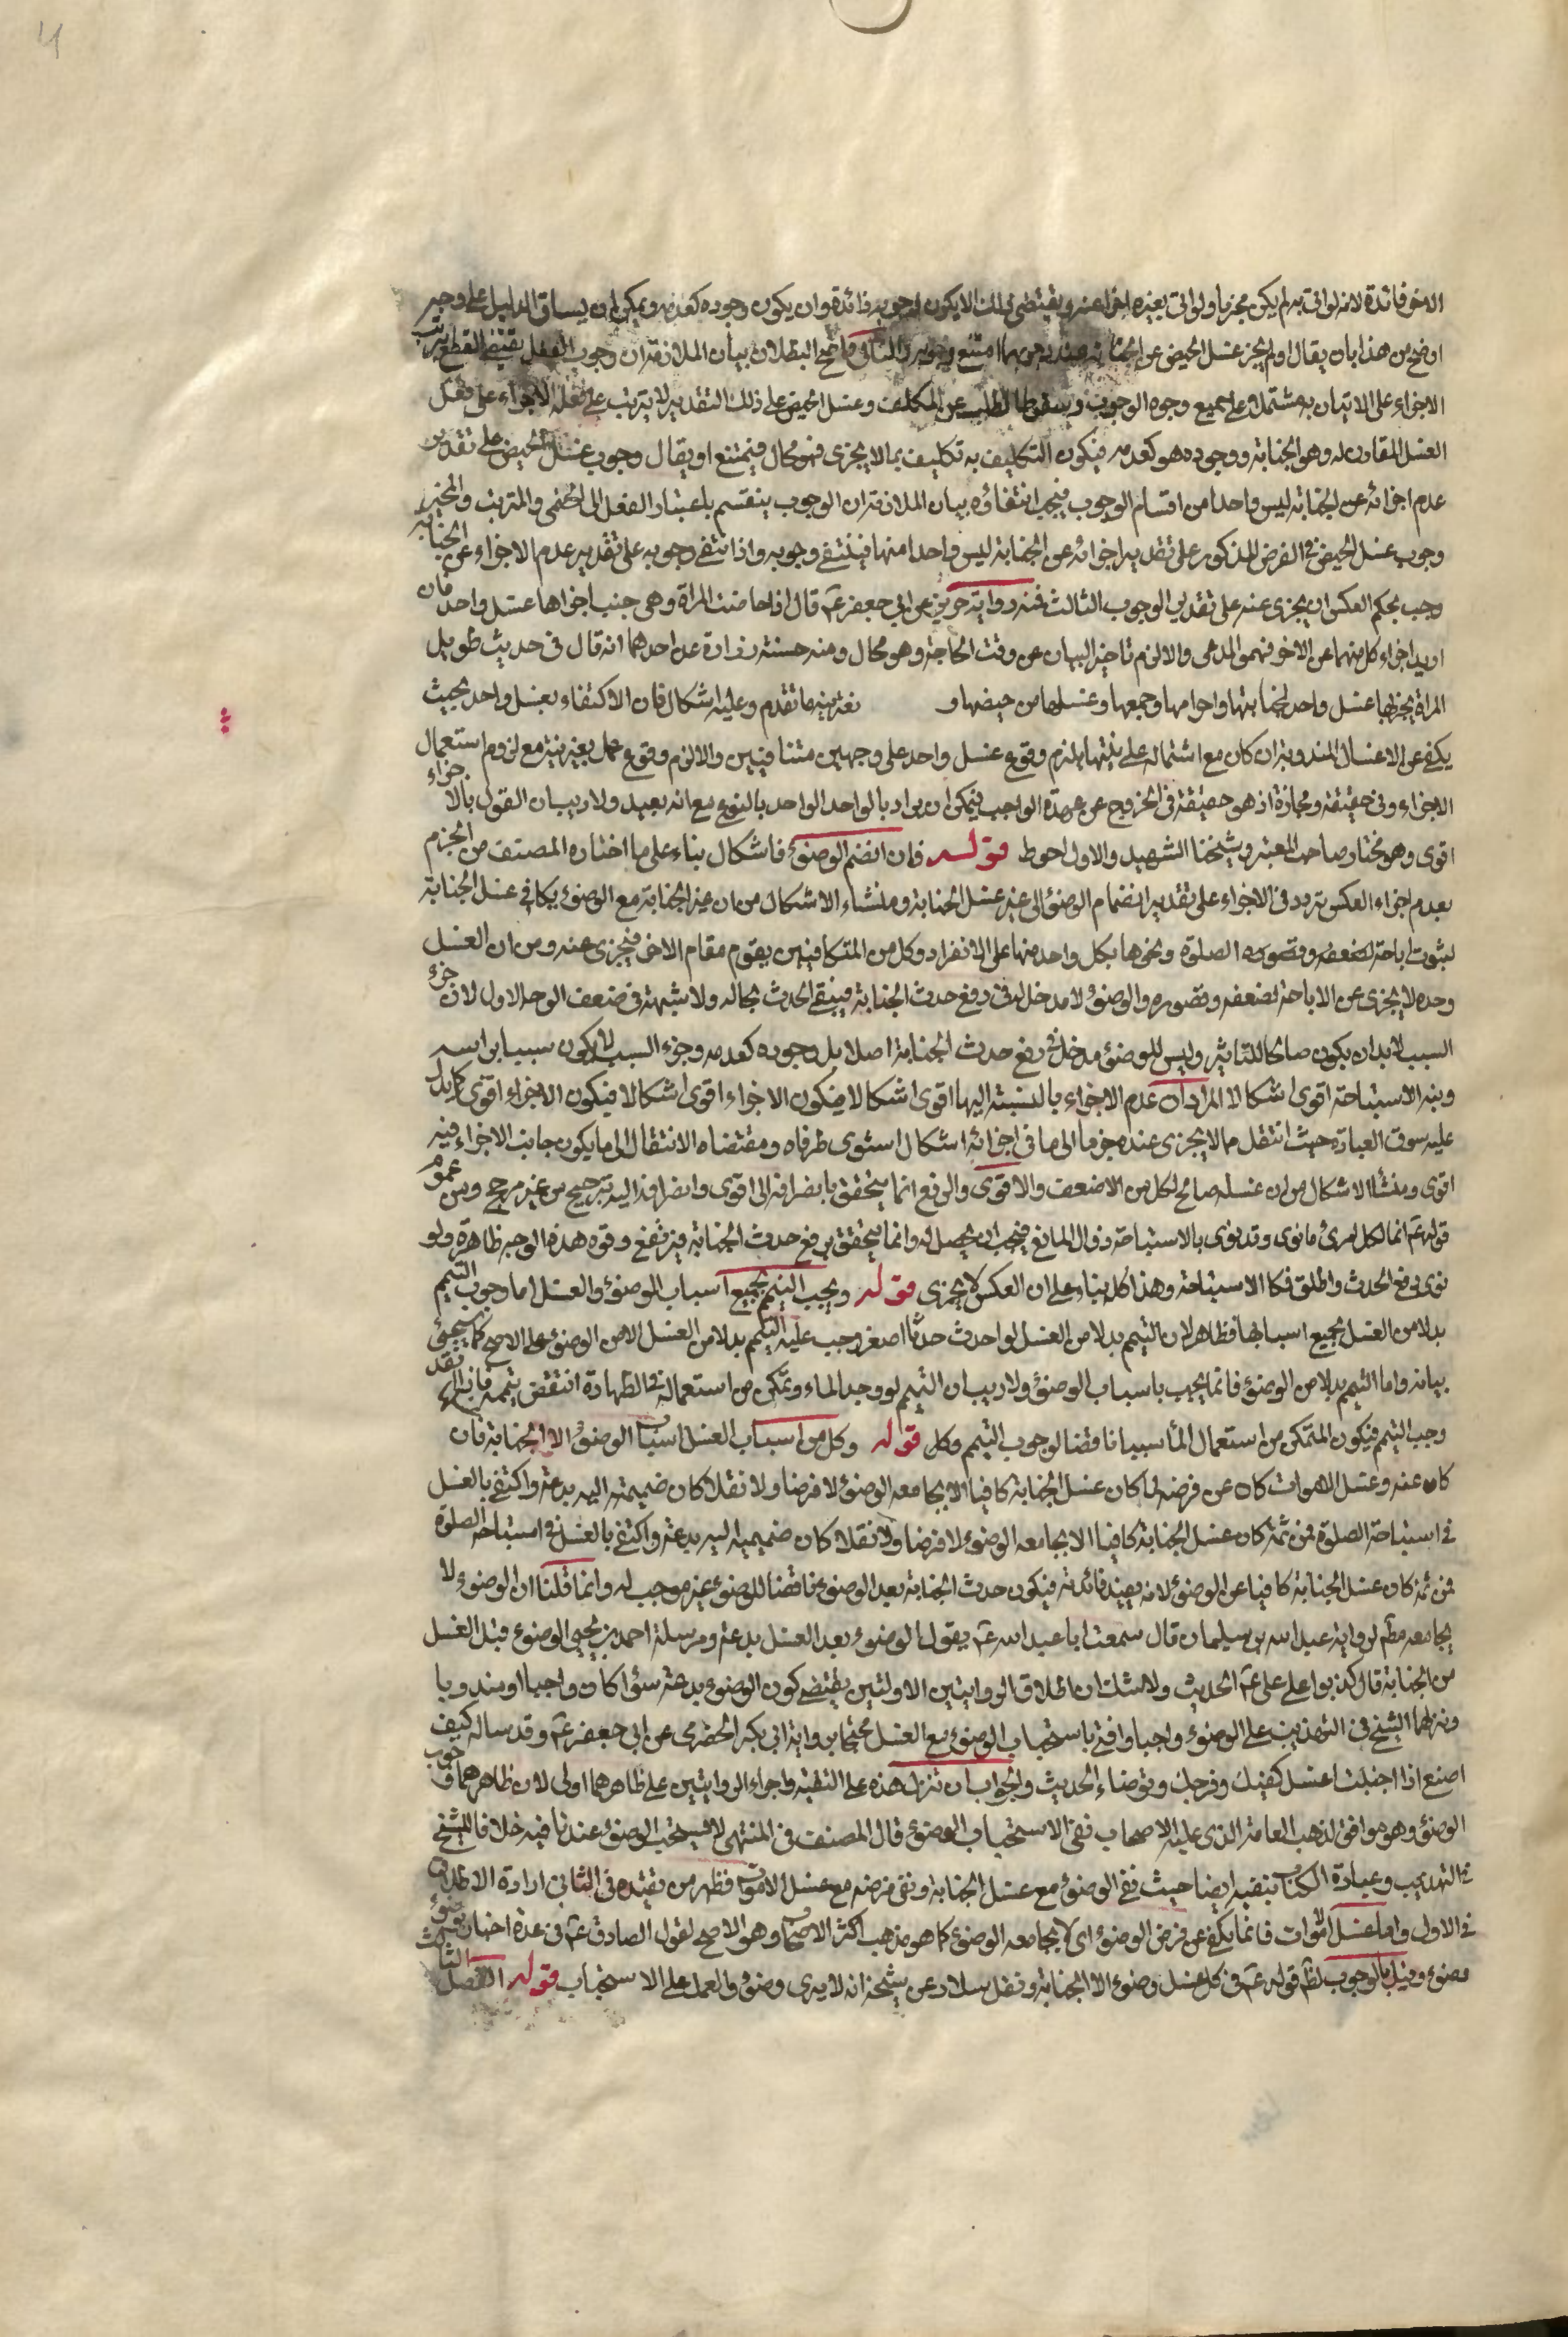 الاخر فائدة لانه لو اتى به لم يكن مجزيا ولو اتى بغيره اجزا عنه ويقتضى ذلك الا يكون لوجوبه فائدة وان يكون وجوده كعدمه ويمكن ان يساق الدليل على وجه
اوضح من هذا بان يقال ولم يجز غسل الحيض عن الجنابة امتنع وجوبه والتالى واضح البطلان بيان الملازمة ان وجوب الفعل يقتضى القطع بترتب
الاجزاء على الاتيان به مشتملا على جميع وجوه الوجوب وسقوط الطلب عن المكلف وغسل الحيض على ذلك التقدير لا يترتب على فعله الاجزاء على فعل
الغسل المقارن له وهو الجنابة ووجوده هو كعدمه فيكون التكليف به تكليف بما لا يجزى فهو محال فيمتنع او يقال وجوب غسل الحيض على تقدير
عدم اجزائه عن الجنابة ليس واحدا من اقسام الوجوب فيجب انتفاؤه بيان الملازمة ان الوجوب ينقسم باعتبار الفعل الى الحتمى والمترتب والمخير
وجوب غسل الحيض فى الفرض المذكور على تقدير اجزائه عن الجنابة ليس واحدا منها فينتفى وجوبه واذا انتفى وجوبه على تقدير عدم الاجزاء عن الجنابة
وجب بحكم العكس ان يجزى عنه على تقدير الوجوب الثالث فمنه رواية حريز عن ابي جعفر عم قال اذا حاضت المراة وهى جنب اجزاها غسل واحد فان
اريد اجزاء كل منهما عن الاخر فهو المدعى والا لزم تاخير البيان عن وقت الحاجة وهو محال ومنه حسنة زرارة عن احدهما انه قال فى حديث طويل
المراة يجزيها غسل واحد لجنابتها واحرامها وجمعها وغسلها من حيضها و تقدم وعليه اشكال فان الاكتفاء بغسل واحد بحيث
يكفى عن الاغسال المندوبة ان كان مع اشتماله على نيتها يلزم وقوع غسل واحد على وجهين متنافيين والا لزم وقوع عمل بغير نية مع لزوم استعمال
الاجزاء فى حقيقته ومجازه اذ هو حقيقة فى الخروج عن عهدة الواجب فيمكن ان يراد بالواحد الواحد بالنوع مع انه بعيد ولا ريب ان القول بالاجزاء
اقوى وهو مختار صاحب المعتبر وشيخنا الشهيد والاول احوط قوله فان انضم الوضوء فاشكال بناء على ما اختاره المصنف من الجزم
بعدم اجزاء العكس تردد فى الاجزاء على تقدير انضمام الوضوء الى غير غسل الجنابة ومنشاء الاشكال من ان غير الجنابة مع الوضوء يكافى غسل الجنابة
لثبوت اباحة الصلوة ونحوها بكل واحد منها على الانفراد وكل من المتكافيين يقوم مقام الاخر فيجزى عنه ومن ان الغسل
وحده لا يجزى عن الاباحة لضعفه وقصوره والوضوء لا مدخل له فى رفع حدث الجنابة فيبقى الحدث بحاله ولا شبهة فى ضعف الوجه الاول لان جزء
السبب لابد ان يكون صالحا للتاثير وليس للوضوء مدخل فى رفع حدث الجنابة اصلا بل وجوده كعدمه وجزء السبب لا يكون سببا براسه
ونية الاستباحة اقوى اشكالا المراد ان عدم الاجزاء بالنسبة اليها اقوى اشكالا فيكون الاجزاء اقوى اشكالا فيكون الاجزاء اقوى كما يدل
عليه سوق العبارة حيث انتقل مما لا يجزى عنده جزما الى ما فى اجزائه اشكال استوى طرفاه ومقتضاه الانتقال الى ما يكون جانب الاجزاء فيه
اقوى ومنشأ الاشكال من ان غسله صالح لكل من الاضعف والاقوى والرفع انما يتحقق بانصرافه الى اقوى وانصرافه اليه ترجيح من غير مرجح ومن عموم
قوله عم انما لكل امرئ ما نوى وقد نوى بالاستباحة زوال المانع فيجب ان يحصل له وانما يتحقق برفع حدث الجنابة فيرتفع وقوه هذه الوجه ظاهرة ولو
نوى رفع الحدث واطلق فكالاستباحة وهذا كله بناء على ان العكس لا يجزى قوله ويجب التيمم بجميع اسباب الوضوء والغسل اما وجوب التيمم
بدلا من الغسل بجميع اسبابها فظاهر لان التيمم بدلا من الغسل لو احدث حدثا اصغر وجب عليه التيمم بدلا من الغسل لا من الوضوء على الاصح كما سيجئ
بيانه واما التيمم بدلا من الوضوء فانما يجب باسباب الوضوء ولا ريب ان التيمم لو وجد الماء وتمكن من استعماله فى الطهارة انتقض تيممه فان
وجب التيمم فيكون المتمكن من استعمال الماء سببا ناقضا لوجوب التيمم وكل قوله وكل من اسباب الغسل اسباب الوضوء الا الجنابة فان
كان عنه وغسل الاموات كان عن فرضه لما كان غسل الجنابة كافيا الا يجامعه الوضوء لا فرضا ولا نفلا كان ضميمته اليه بدعة واكتفى بالغسل
فى استباحة الصلوة فمن ثمة كان غسل الجنابة كافيا الا يجامعه الوضوء لا فرضا ولا نفلا كان ضميمته اليه بدعة واكتفى بالغسل فى استباحة الصلوة
فمن ثمة كان غسل الجنابة كافيا عن الوضوء لانه يفيد فائدته فيكون حدث الجنابة بعد الوضوء ناقضا للوضوء غير موجب له وانما قلنا ان الوضوء لا
يجامعه مطم لرواية عبد الله بن سليمان قال سمعت ابا عبد الله عم يقول الوضوء بعد الغسل بدعة ومرسلة احمد بن يحيى الوضوء قبل الغسل
من الجنابة قال كذبوا على على عم الحديث ولا شك ان اطلاق الروايتين الاولتين يقتضى كون الوضوء بدعة سواء كان واجبا او مندوبا
ونزلهما الشيخ فى التهذيب على الوضوء واجبا وافتى باستحباب الوضوء مع الغسل محتجا برواية ابى بكر الحضرمى عن ابي جعفر عم وقد ساله كيف
اصنع اذا اجنبت اغسل كفيك وفرجك وتوضاء الحديث والجواب ان تنزل هذه على التقية واجراء الروايتين على ظاهرهما اولى لان ظاهرهما وجوب
الوضوء وهو موافق لمذهب العامة الذى عليه الاصحاب نفى الاستحباب الوضوء قال المصنف فى المنتهى لا يستحب الوضوء عندنا فيه خلافا للشيخ
فى التهذيب وعبارة الكتاب تنفيه ايضا حيث نفى الوضوء مع غسل الجنابة ونفى فرضه مع غسل الاموات فظهر من تقييده فى الثانى ارادة الاطلاق
فى الاول واما غسل الاموات فانما يكفى عن فرض الوضوء اى لا يجامعه الوضوء كما هو مذهب اكثر الاصحاب وهو الاصح لقول الصادق عم فى عدة اخبار
وضوء وقيل بالوجوب لظم قوله عم فى كل غسل وضوء الا الجنابة ونقل سلار عن شيخه انه لا يرى وضوء والعمل على الاستحباب قوله الفصل الثالث